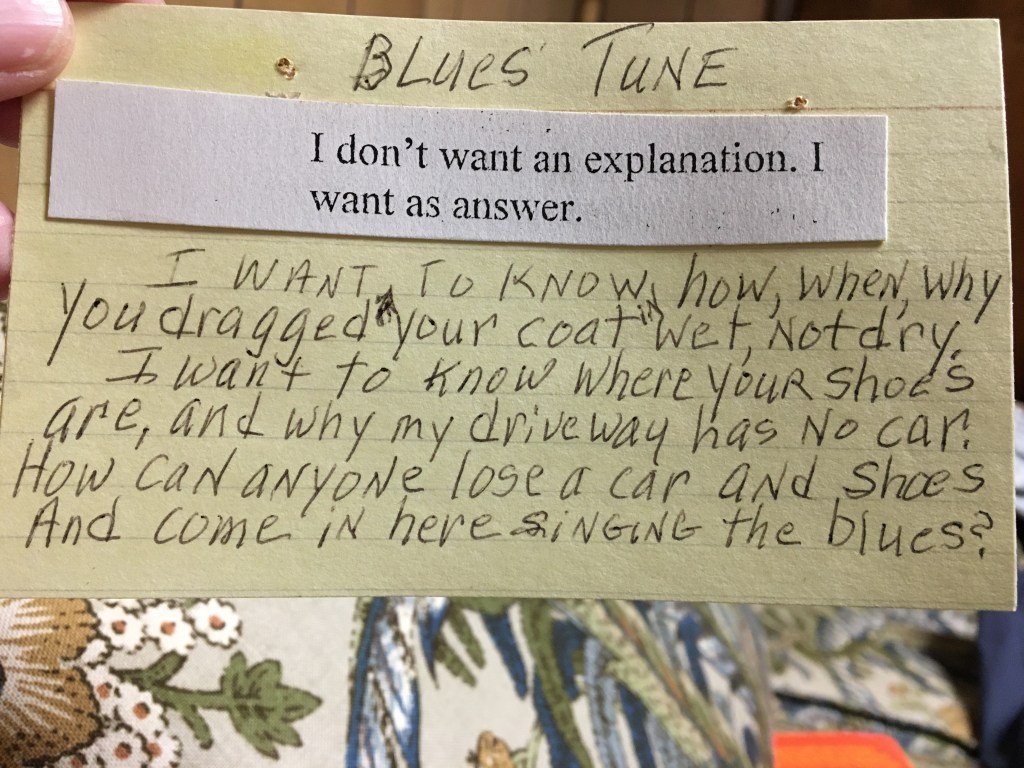 BLUES TUNE
I don't want an explanation. I
want as answer.
I WANT TO KNOW how, when, why
You dragged your coat in wet, Not dry.
I want to know where your shoes
are, and why my driveway has No car.
How can anyone lose a car and shoes
And come in here singing the blues?